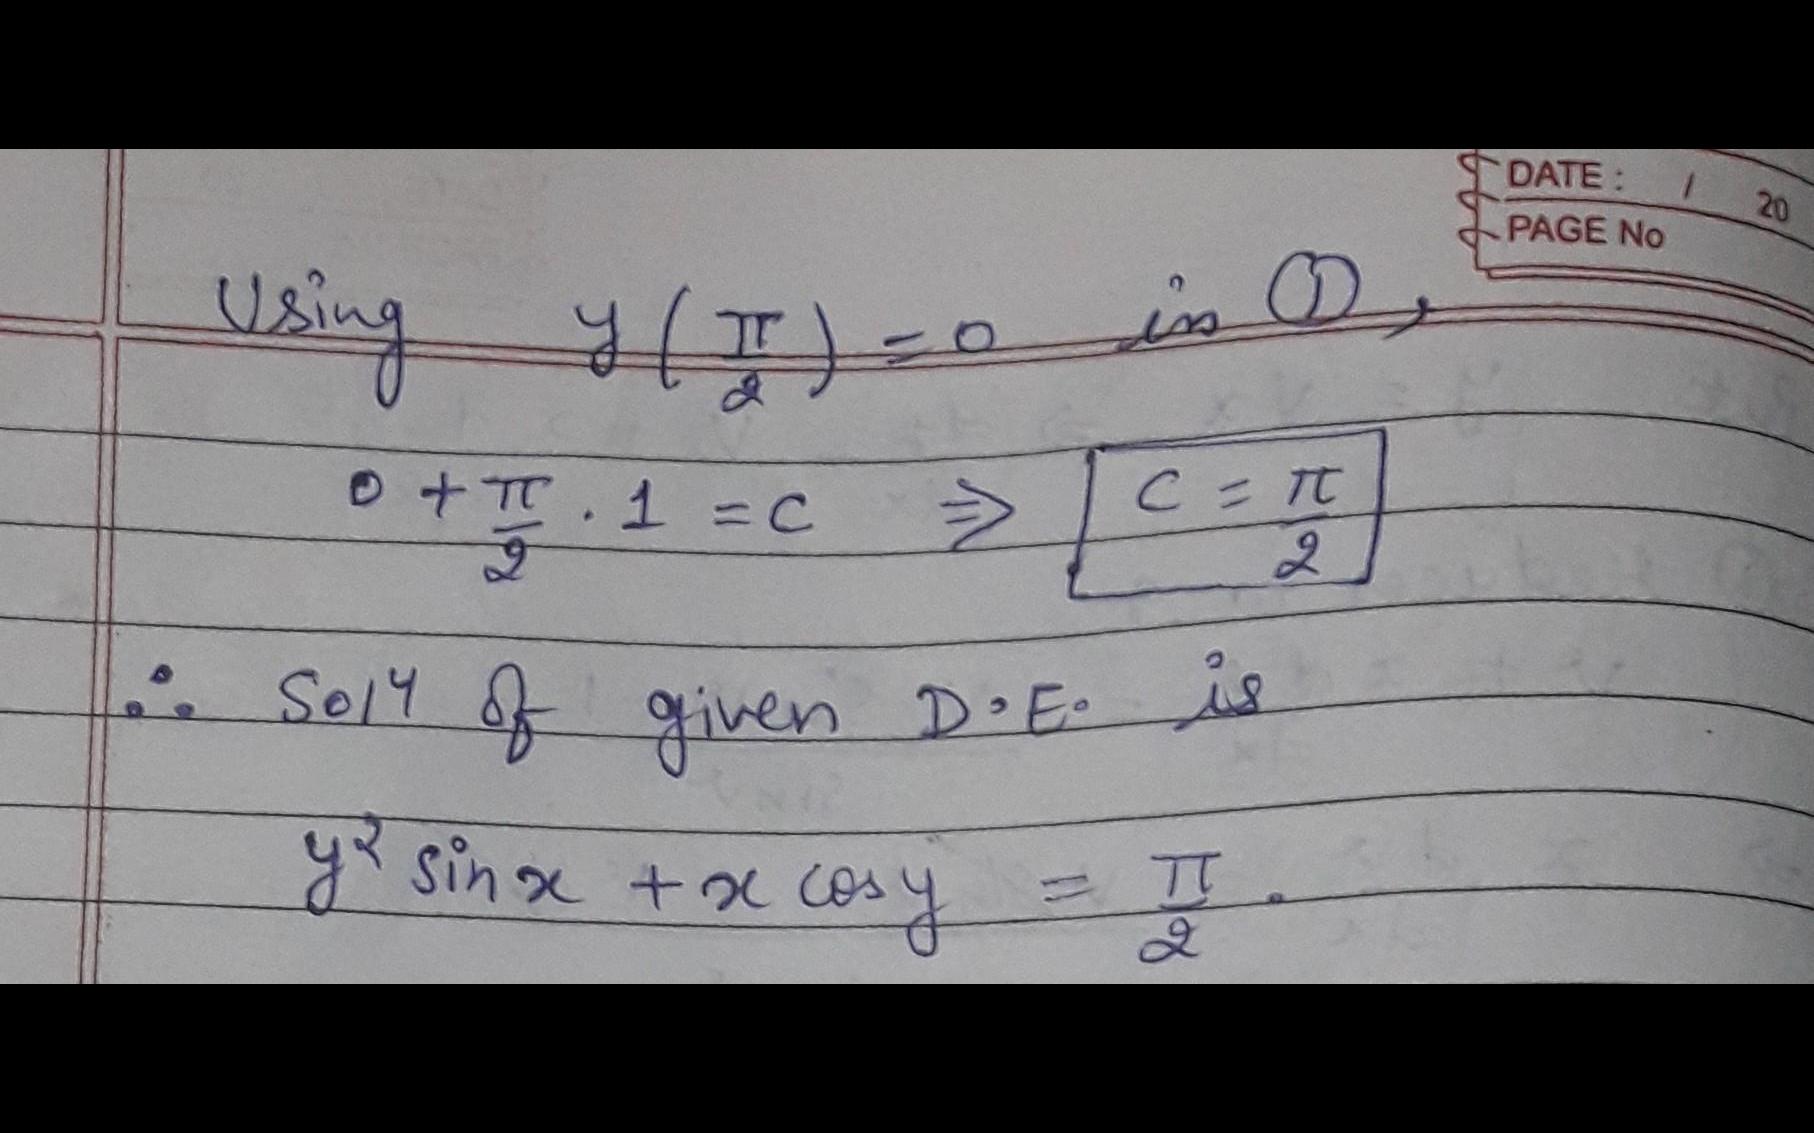 DATE: / 20
PAGE No
Using y(π/2) = 0 in ①,
0 + π/2 . 1 = C ⇒ C = π/2
∴ Sol4 of given D.E. is
y² sin x + x cos y = π/2 .